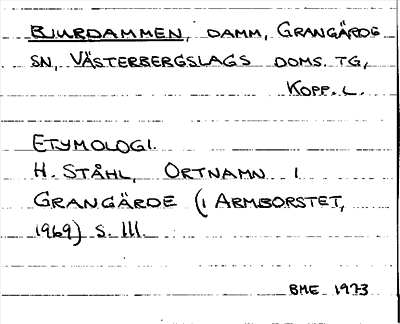 BJURDAMMEN, DAMM, GRANGÄRDE
SN, VÄSTERBERGSLAGS DOMS. TG,
KOPP. L.
ETYMOLOGI.
H. STÅHL, ORTNAMN I
GRANGÄRDE (I ARMBORSTET,
1969) S. 111.
BME 1973